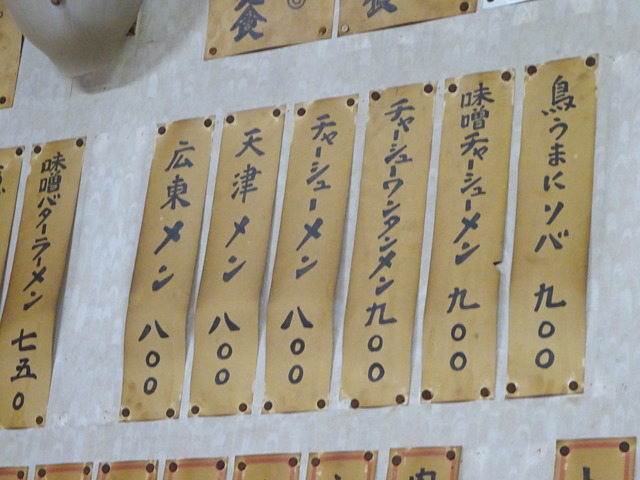 鳥うまにソバ 九00
味噌チャーシューメン 九00
チャーシューワンタンメン 九00
チャーシューメン 八00
天津メン 八00
広東メン 八00
味噌バターラーメン 七五0